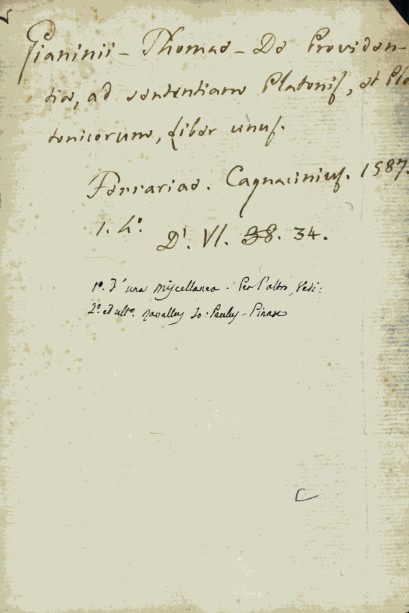 Gianinii - Thomae - De Providen-
tia, ad sententiam Platonis, et Pla
tonicorum, Liber unus.
Ferrariae. Cagnacinius. 1587.
1. 4°.
D'. VI. 38. 34.
1°. d'una miscellanea. Per l'altro, Vedi:
2°. ed ult°. Navallus Jo: Paulus - Pinax